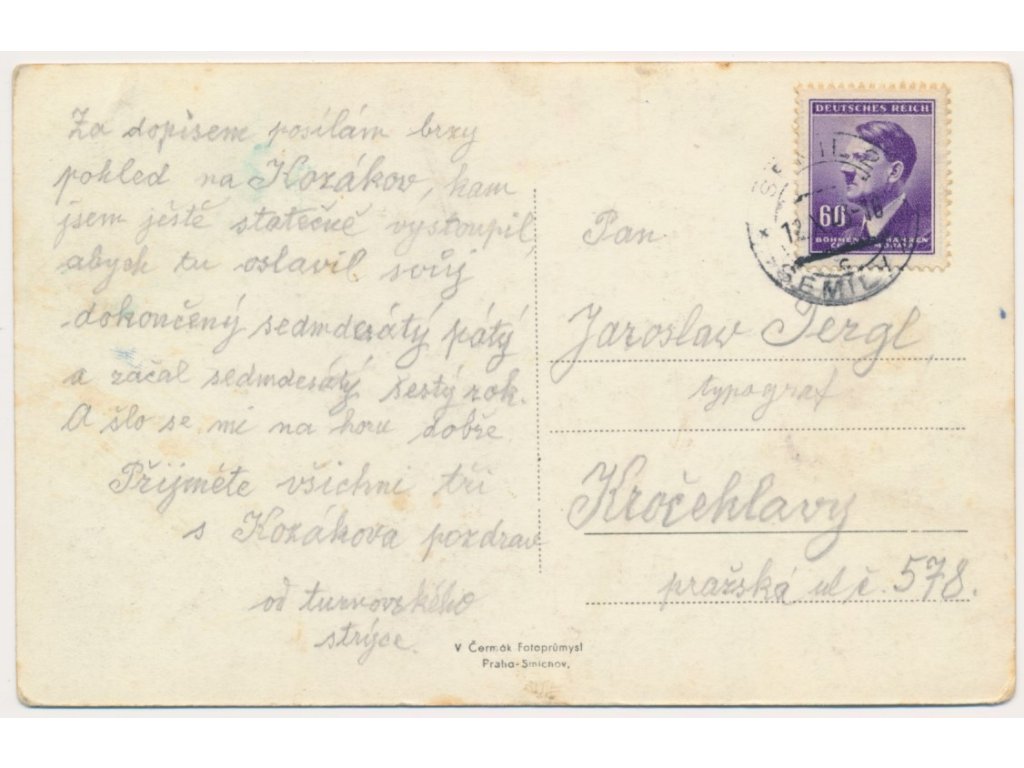 Za dopisem posílám brzy
pohled na Kozákov, kam
jsem ještě statečně vystoupil,
abych tu oslavil svůj
dokončený sedmdesátý pátý
a začal sedmdesátý šestý rok.
A šlo se mi na horu dobře
Přijměte všichni tři
s Kozákova pozdrav
od turnovského
strýce.
V Čermák Fotoprůmysl
Praha-Smíchov.
DEUTSCHES REICH
60
BÖHMEN
SEMILY
Pan
Jaroslav Tergl,
typograf
Kročehlavy
pražská ul č. 578.